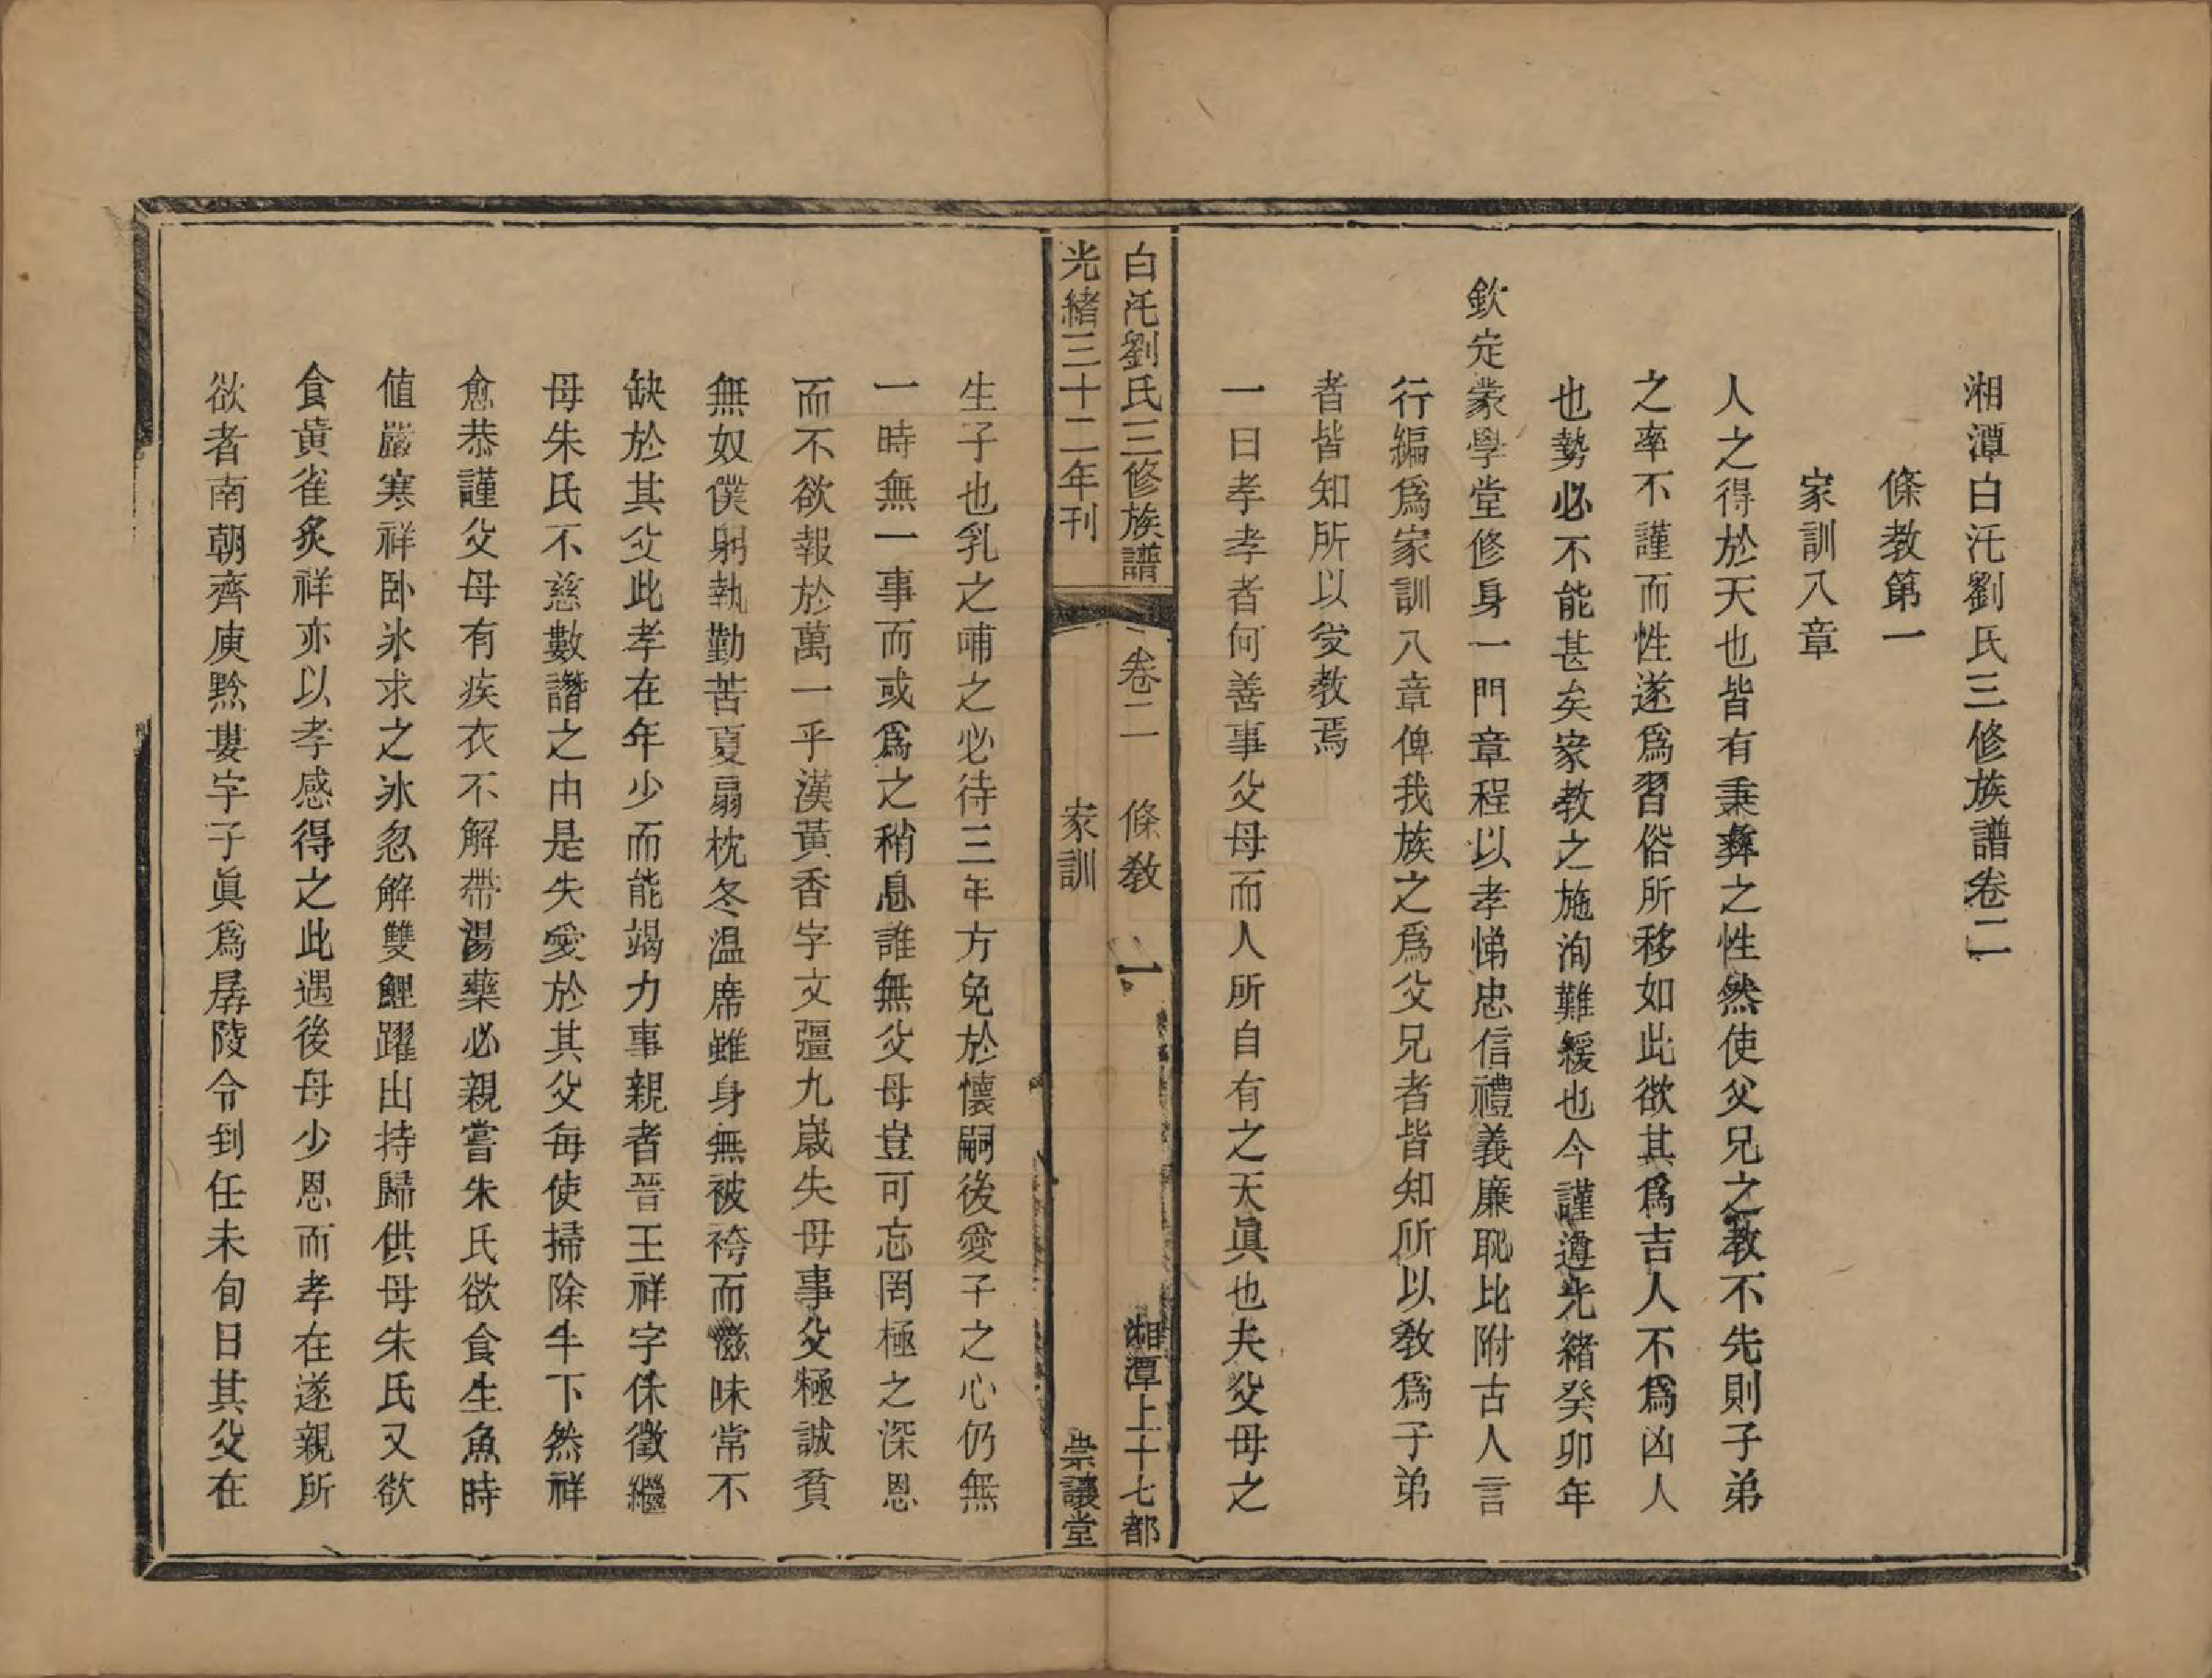 湘潭白汑劉氏三修族譜卷二
條教第一
家訓八章
人之得於天也皆有秉彝之性然使父兄之教不先則子弟
之率不謹而性遂爲習俗所移如此欲其爲吉人不爲凶人
也勢必不能甚矣家教之施洵難緩也今謹遵光緒癸卯年
欽定蒙學堂修身一門章程以孝悌忠信禮義廉恥比附古人言
行編爲家訓八章俾我族之爲父兄者皆知所以教爲子弟
者皆知所以受教焉
一曰孝孝者何善事父母而人所自有之天眞也夫父母之
白汑劉氏三修族譜
卷二
條教
一
湘潭上十七都
光緒三十二年刊
家訓
崇讓堂
生子也乳之哺之必待三年方免於懷嗣後愛子之心仍無
一時無一事而或爲之稍息誰無父母豈可忘罔極之深恩
而不欲報於萬一乎漢黃香字文彊九歲失母事父極誠貧
無奴僕躬執勤苦夏扇枕冬温席雖身無被袴而滋味常不
缺於其父此孝在年少而能竭力事親者晉王祥字休徵繼
母朱氏不慈數譖之由是失愛於其父每使掃除牛下然祥
愈恭謹父母有疾衣不解帶湯藥必親嘗朱氏欲食生魚時
値嚴寒祥卧氷求之氷忽解雙鯉躍出持歸供母朱氏又欲
食黃雀炙祥亦以孝感得之此遇後母少恩而孝在遂親所
欲者南朝齊庾黔婁字子眞爲孱陵令到任未旬日其父在